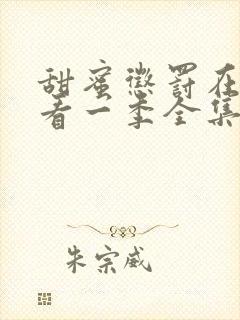 甜蜜惩罚在
看一季全集
朱宗威